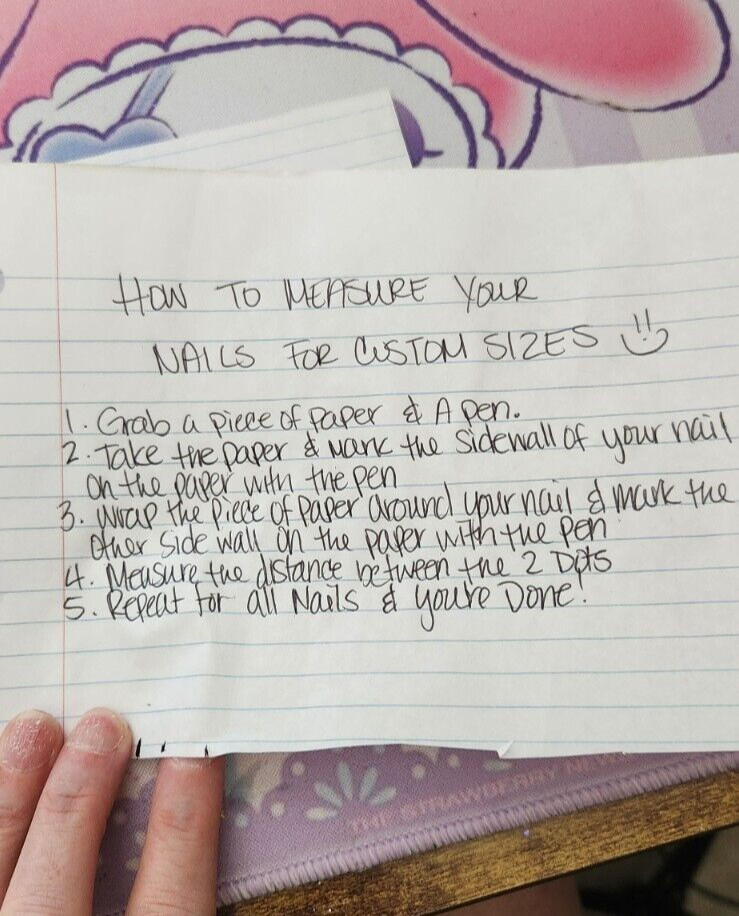 HOW TO MEASURE YOUR
NAILS FOR CUSTOM SIZES
1. Grab a piece of paper & A pen.
2. Take the paper & mark the sidewall of your nail
on the paper with the pen
3. Wrap the piece of paper around your nail & mark the
other side wall on the paper with the pen
4. Measure the distance between the 2 Dots
5. Repeat for all Nails & you're Done!
THE STRAWBERRY NEW